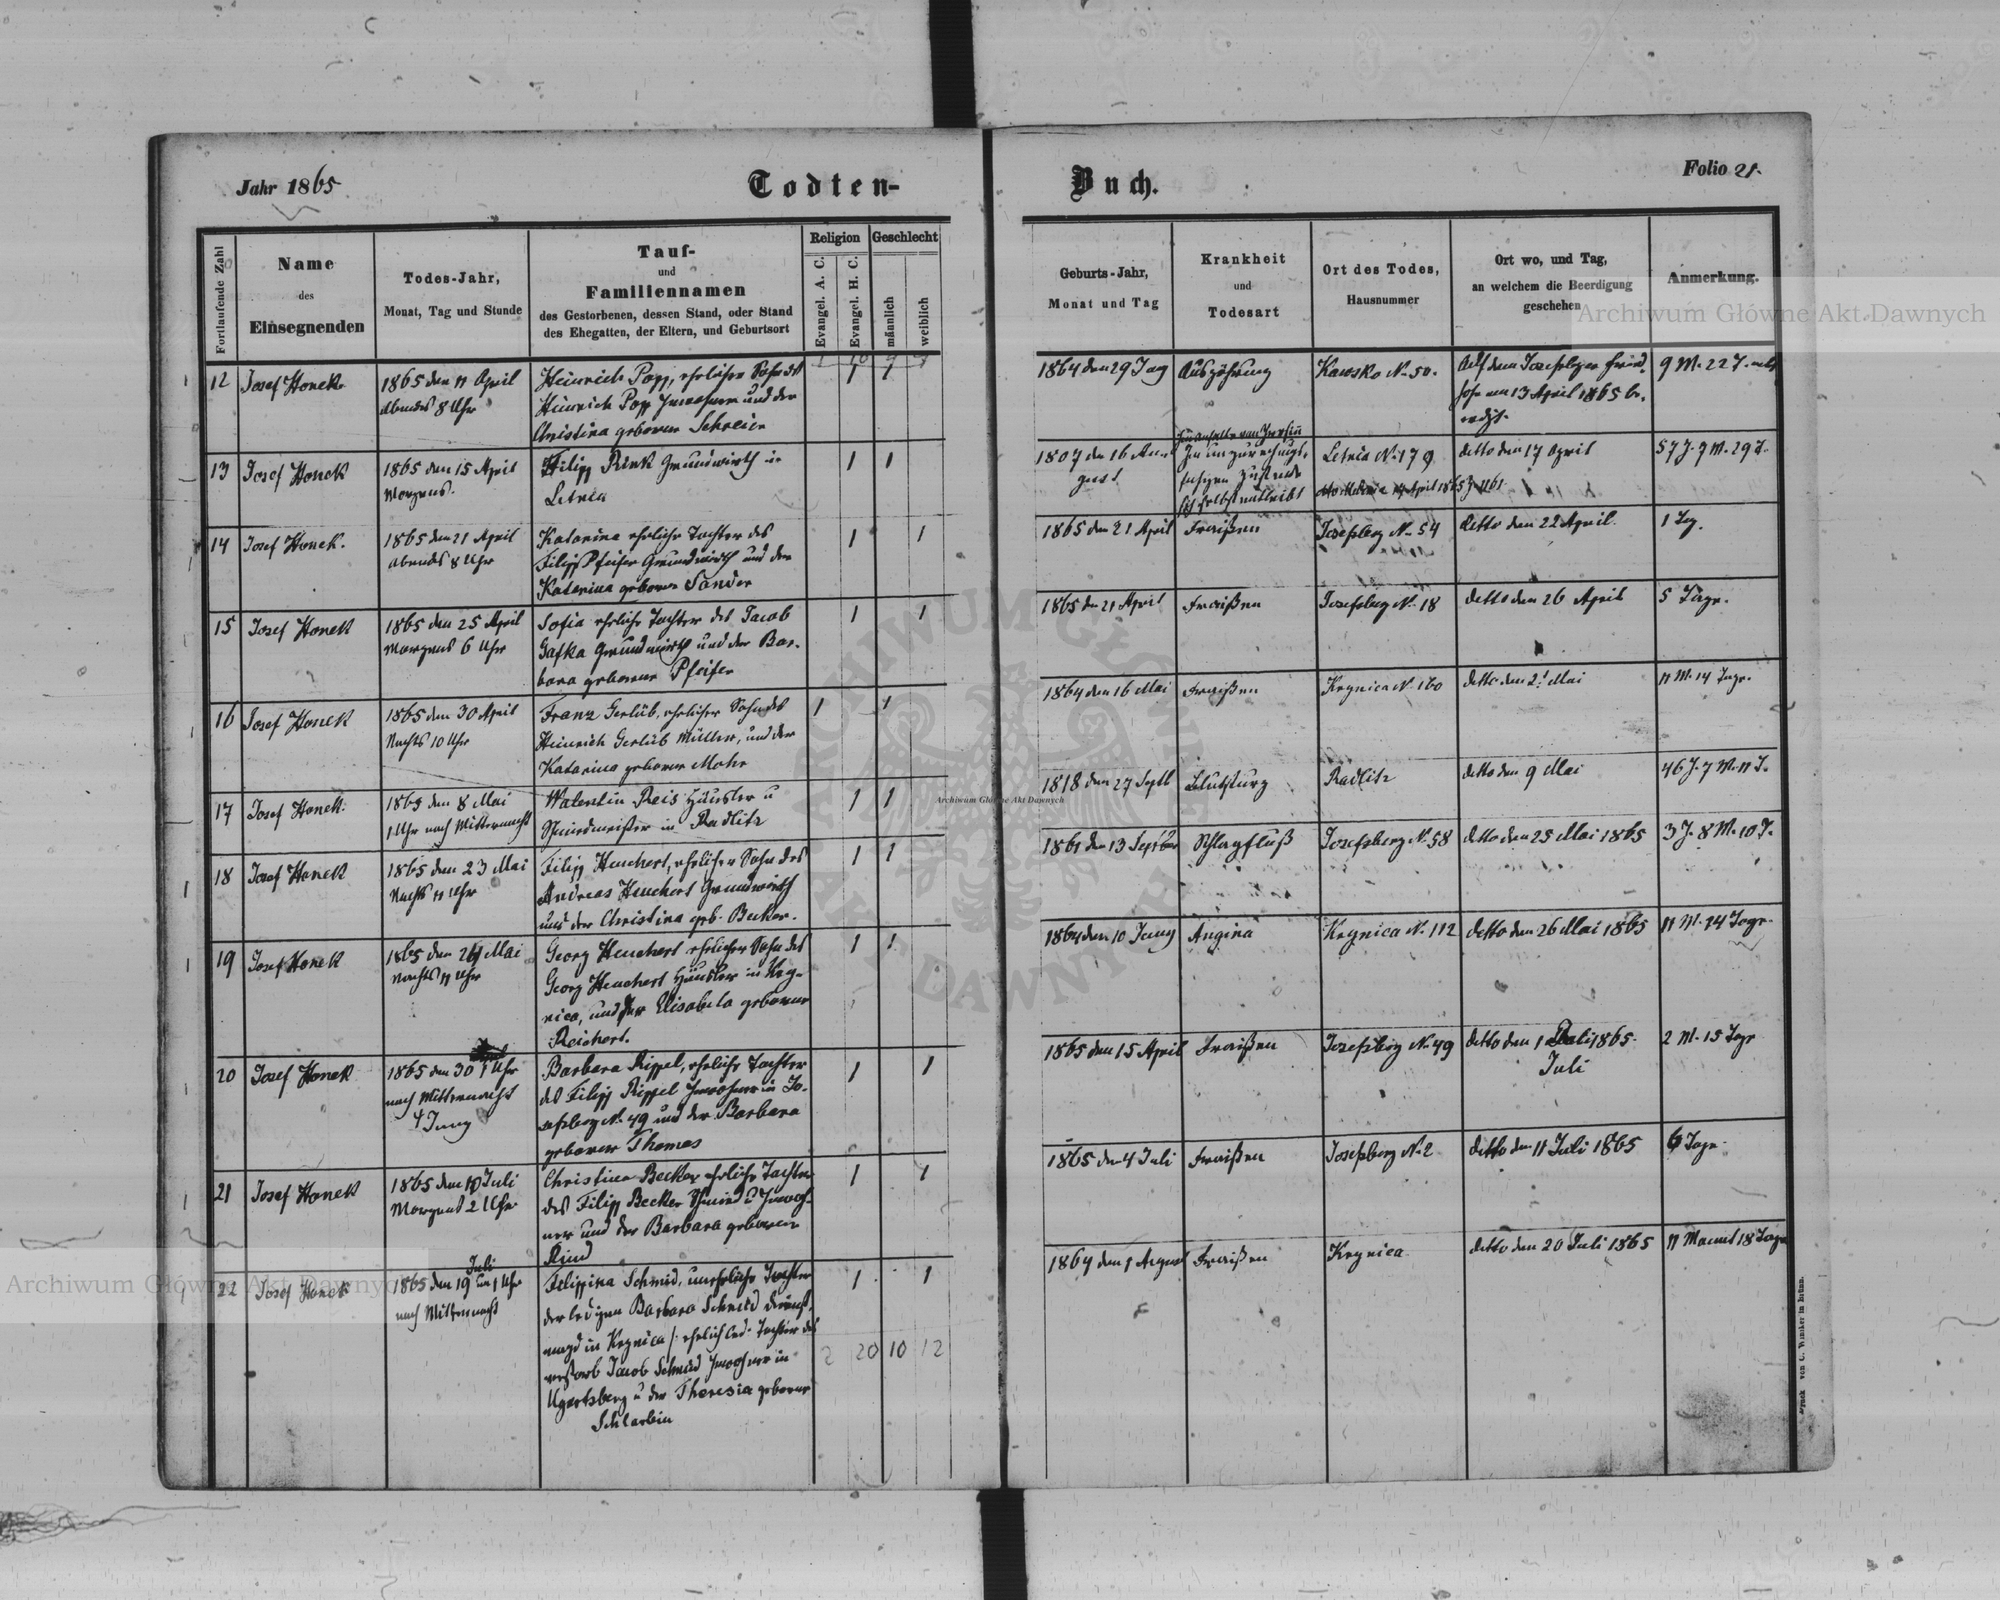 Jahr 1865
Todten-
Buch.
Folio 21.
Fortlaufende Zahl
Name
des
Einsegnenden
Todes-Jahr,
Monat, Tag und Stunde
Tauf-
und
Familiennamen
des Gestorbenen, dessen Stand, oder Stand
des Ehegatten, der Eltern, und Geburtsort
Religion
Evangel. A. C.
Evangel. H. C.
Geschlecht
männlich
weiblich
Geburts-Jahr,
Monat und Tag
Krankheit
und
Todesart
Ort des Todes,
Hausnummer
Ort wo, und Tag,
an welchem die Beerdigung
geschehen
Anmerkung.
1 10 9 7
12 Josef Honek
1865 den 11 April
Abends 8 Uhr
Heinrich Popp, ehelicher Sohn des
Heinrich Popp Inwohner und der
Christina geborene Schreier
1 1
1864 den 29 Juny
Auszöhrung
Kawsko No. 50.
Auf dem Josefsberger Fried-
hofe am 13 April 1865 be-
erdigt.
9 M. 22 T.
13 Josef Honek
1865 den 15 April
Morgens.
Filipp Rink Grundwirth in
Letnia
1 1
1807 den 16 Au-
gust
Im unzurechnungs-
fähigen Zustande
sich selbst entleibt
Letnia No. 179
detto den 17 April
57 J. 7 M. 29 T.
14 Josef Honek.
1865 den 21 April
Abends 8 Uhr
Katarina eheliche Tochter des
Filipp Pfeifer Grundwirth und der
Katarina geborene Sander
1 1
1865 den 21 April
Fraißen
Josefsberg No. 54
detto den 22 April.
1 Tag.
15 Josef Honek
1865 den 25 April
Morgens 6 Uhr
Sofia eheliche Tochter des Jacob
Gafka Grundwirth und der Bar-
bara geborene Pfeifer
1 1
1865 den 21 April
Fraißen
Josefsberg No. 18
detto den 26 April
5 Tage.
16 Josef Honek
1865 den 30 April
Nachts 10 Uhr
Franz Gerlüb, ehelicher Sohn des
Heinrich Gerlüb Müller, und der
Katarina geborene Mohr
1 1
1864 den 16 Mai
Fraißen
Krynica No. 160
detto den 2t Mai
11 M. 14 Tage.
17 Josef Honek.
1865 den 8 Mai
1 Uhr nach Mitternacht
Walentin Reis Häusler u
Schmiedmeister in Radlitz
1 1
1818 den 27 Septb
Blutsturz
Radlitz
detto den 9 Mai
46 J. 7 M. 11 T.
18 Josef Honek
1865 den 23 Mai
Nachts 11 Uhr
Filipp Heuchert, ehelicher Sohn des
Andreas Heuchert Grundwirth
und der Christina geb. Becker.
1 1
1861 den 13 Septber
Schlagfluß
Josefsberg No. 58
detto den 25 Mai 1865
3 J. 8 M. 10 T.
19 Josef Honek
1865 den 24 Mai
Nachts 11 Uhr
Georg Heuchert ehelicher Sohn des
Georg Heuchert Häusler in Kry-
nica, und der Elisabeta geborene
Reichert.
1 1
1864 den 10 Juny
Angina
Krynica No. 112
detto den 26 Mai 1865
11 M. 14 Tage.
20 Josef Honek
1865 den 30 1 Uhr
nach Mitternacht
Juny
Barbara Rippel, eheliche Tochter
des Filipp Rippel Inwohner in Jo-
sefsberg No. 49 und der Barbara
geborene Thomas
1 1
1865 den 15 April
Fraißen
Josefsberg No. 49
detto den 1 Juli 1865.
Juli
2 M. 15 Tage
21 Josef Honek
1865 den 10 Juli
Morgens 2 Uhr
Christina Becker eheliche Tochter
des Filipp Becker Schmied u Inwoh-
ner und der Barbara geborene
Rind
1 1
1865 den 4 Juli
Fraißen
Josefsberg No. 2
detto den 11 Juli 1865
6 Tage.
22 Josef Honek
Juli
1865 den 19 um 1 Uhr
nach Mitternacht
Filippina Schmid, uneheliche Tochter
der ledigen Barbara Schmid Dienst-
magd in Krynica /: ehelich led. Tochter des
verstorb Jacob Schmid Inwohner in
Ugartsberg u der Theresia geborene
Schlarbin
1 1
2 20 10 12
1864 den 1 August
Fraißen
Krynica
detto den 20 Juli 1865
11 Monat 18 Tage
Archiwum Główne Akt Dawnych
Archiwum Główne Akt Dawnych
Archiwum Główne Akt Dawnych
ARCHIWUM GŁÓWNE AKT DAWNYCH